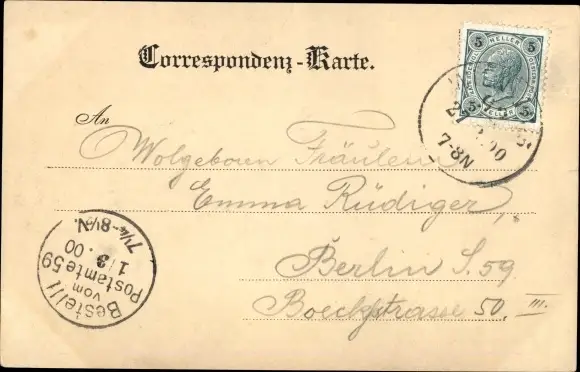 Correspondenz-Karte.
5 HELLER 5
5 HELLER 5
7-8N
An
Wolgeboren Fräulein
Emma Rüdiger,
Berlin S. 59
Boeckhstrasse 50. III.
Bestellt
vom
Postamte 59
1/3.00
7¼-8½N.